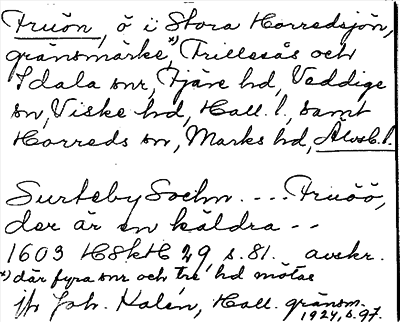 Fruön, ö i Stora Horredsjön,
gränsmärke*), Frillesås och
Idala snr, Fjäre hd, Veddige
sn, Viske hd, Hall. l., samt
Horreds sn, Marks hd, Älvsb. l.
Surteby Sochn .... Fruöö,
der är en käldra --
1603 HSkH 29 s. 81. avskr.
*) där fyra snr och tre hd mötas
jfr Joh. Kalén, Hall. gränsm.
1924, s. 97.